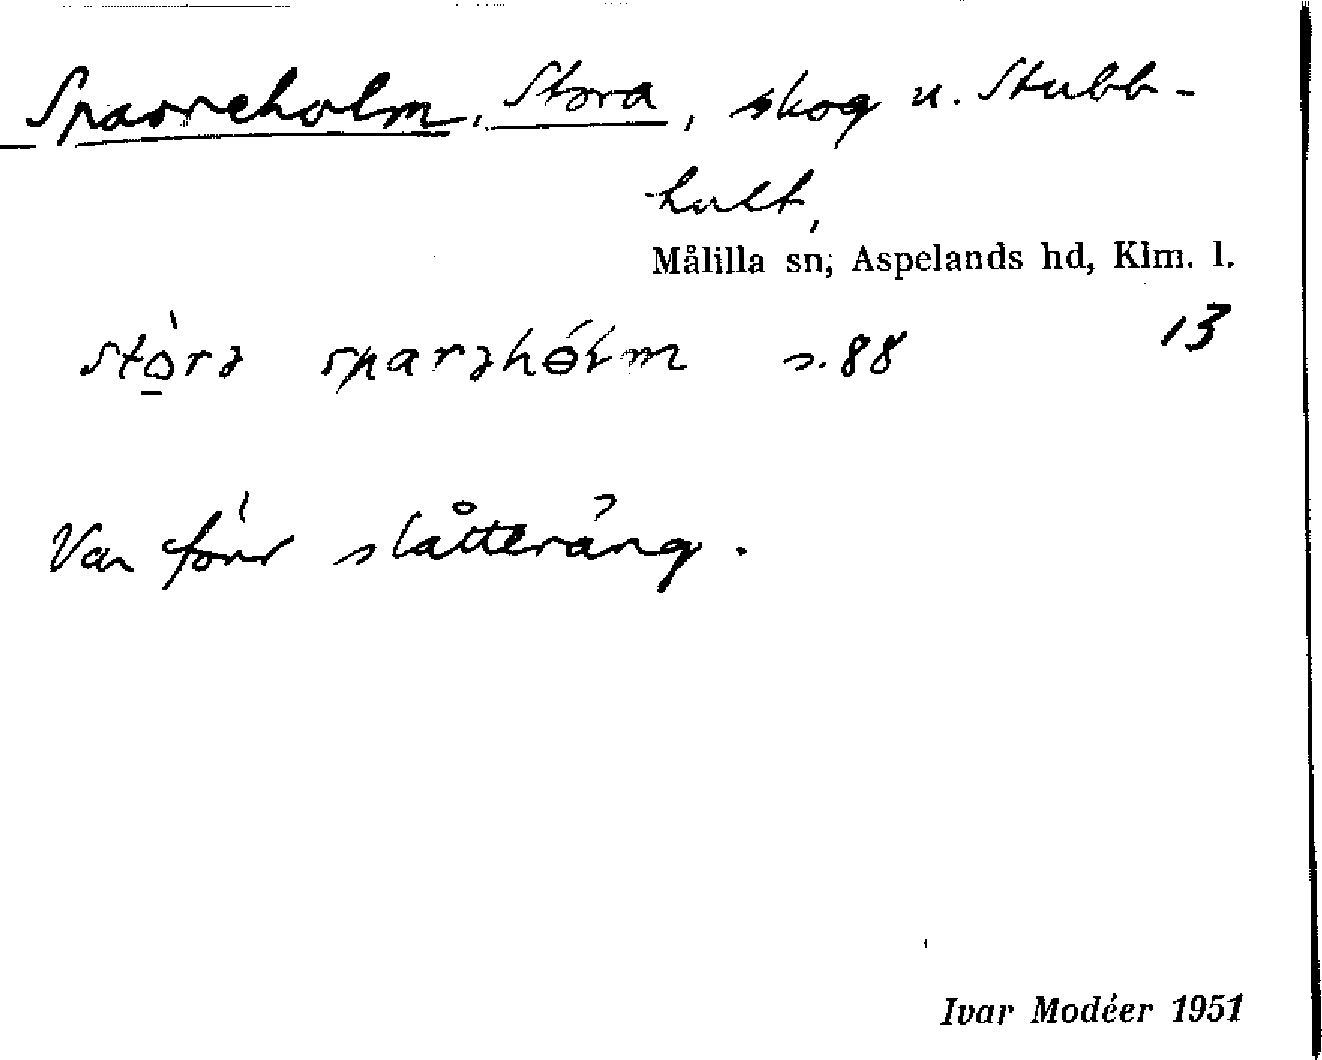 Sparreholm, Stora, skog u. Stubb-
hult,
Målilla sn; Aspelands hd, Klm. l.
stòra sparəhólm s. 88 13
Var förr slåtteräng.
Ivar Modéer 1951